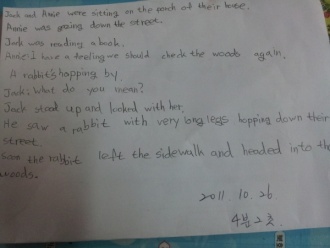 Jack and Annie were sitting on the porch of their house.
Annie was gazing down the street.
Jack was reading a book.
Annie: I have a feeling we should check the woods again.
A rabbit's hopping by.
Jack: What do you mean?
Jack stood up and looked with her.
He saw a rabbit with very long legs hopping down their
street.
Soon the rabbit left the sidewalk and headed into the
woods.
2011. 10. 26
4분 2초.